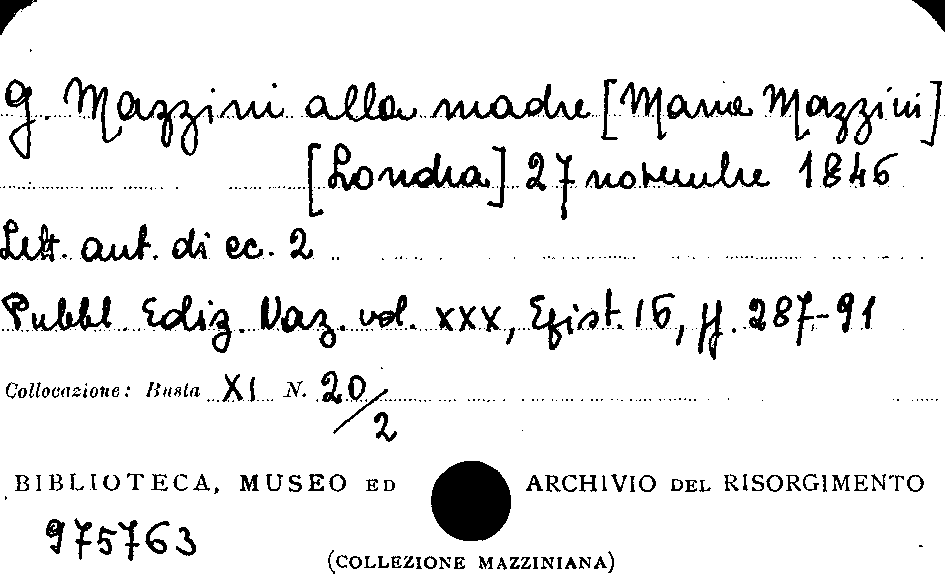 G. Mazzini alla madre [Maria Mazzini]
[Londra] 27 novembre 1846
Lett. aut. di cc. 2
Pubbl. Ediz. Naz. vol. XXX, Epist. 16, pp. 287-91
Collocazione: Busta XI N. 20/2
BIBLIOTECA, MUSEO ED ARCHIVIO DEL RISORGIMENTO
975763
(COLLEZIONE MAZZINIANA)